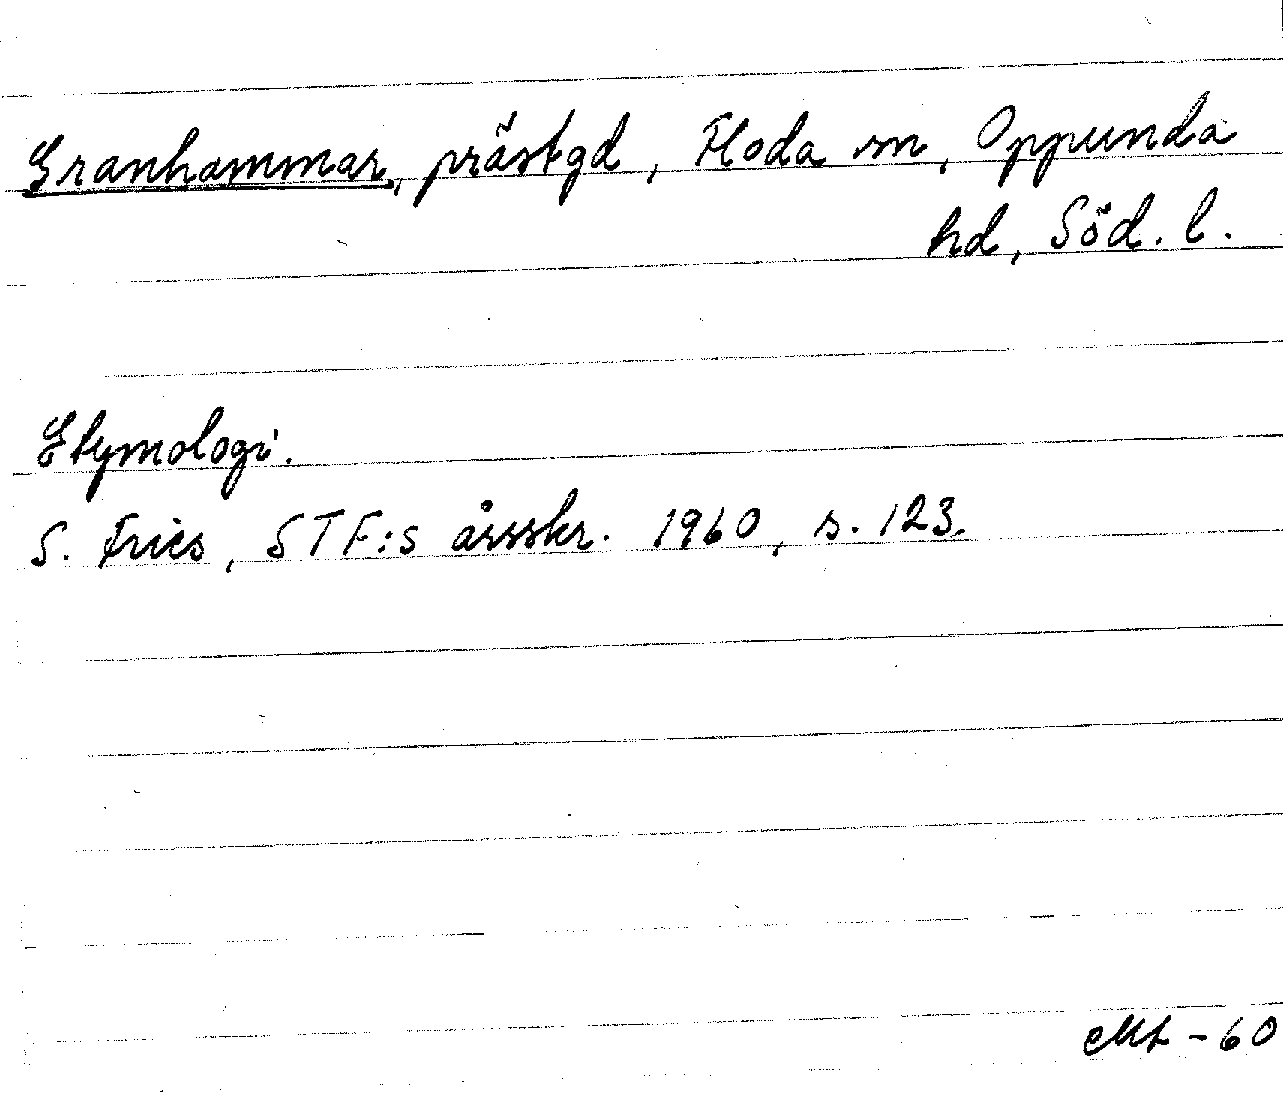 Granhammar, prästgd, Floda sn, Oppunda
hd, Söd. l.
Etymologi.
S. Fries, STF:s årsskr. 1960, s. 123.
-60